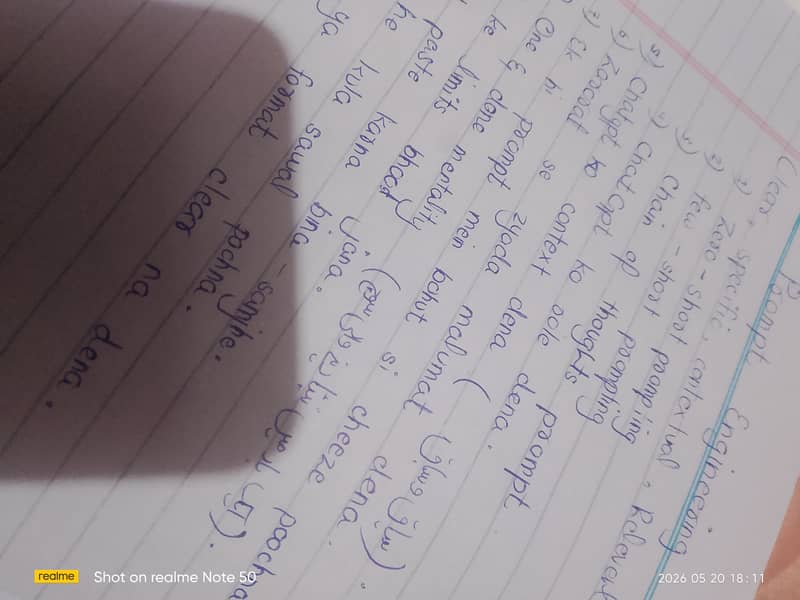 Prompt Engineering
Clear, specific, contextual, Relevent
1) Zero-shot prompting
2) Few-shot prompting
3) Chain of thoughts
4) ChatGpt ko role dena.
5) Chatgpt ko context dena (
6) Zaroorat se zyada malumat dena.
7) Ek hi prompt mein bohut si cheeze poochna
One & done mentality (
ke limits bhool jana.
paste karna bina samjhe.
he kula sawal pochna.
ya format clear na dena.
realme Shot on realme Note 50
2026 05 20 18:11